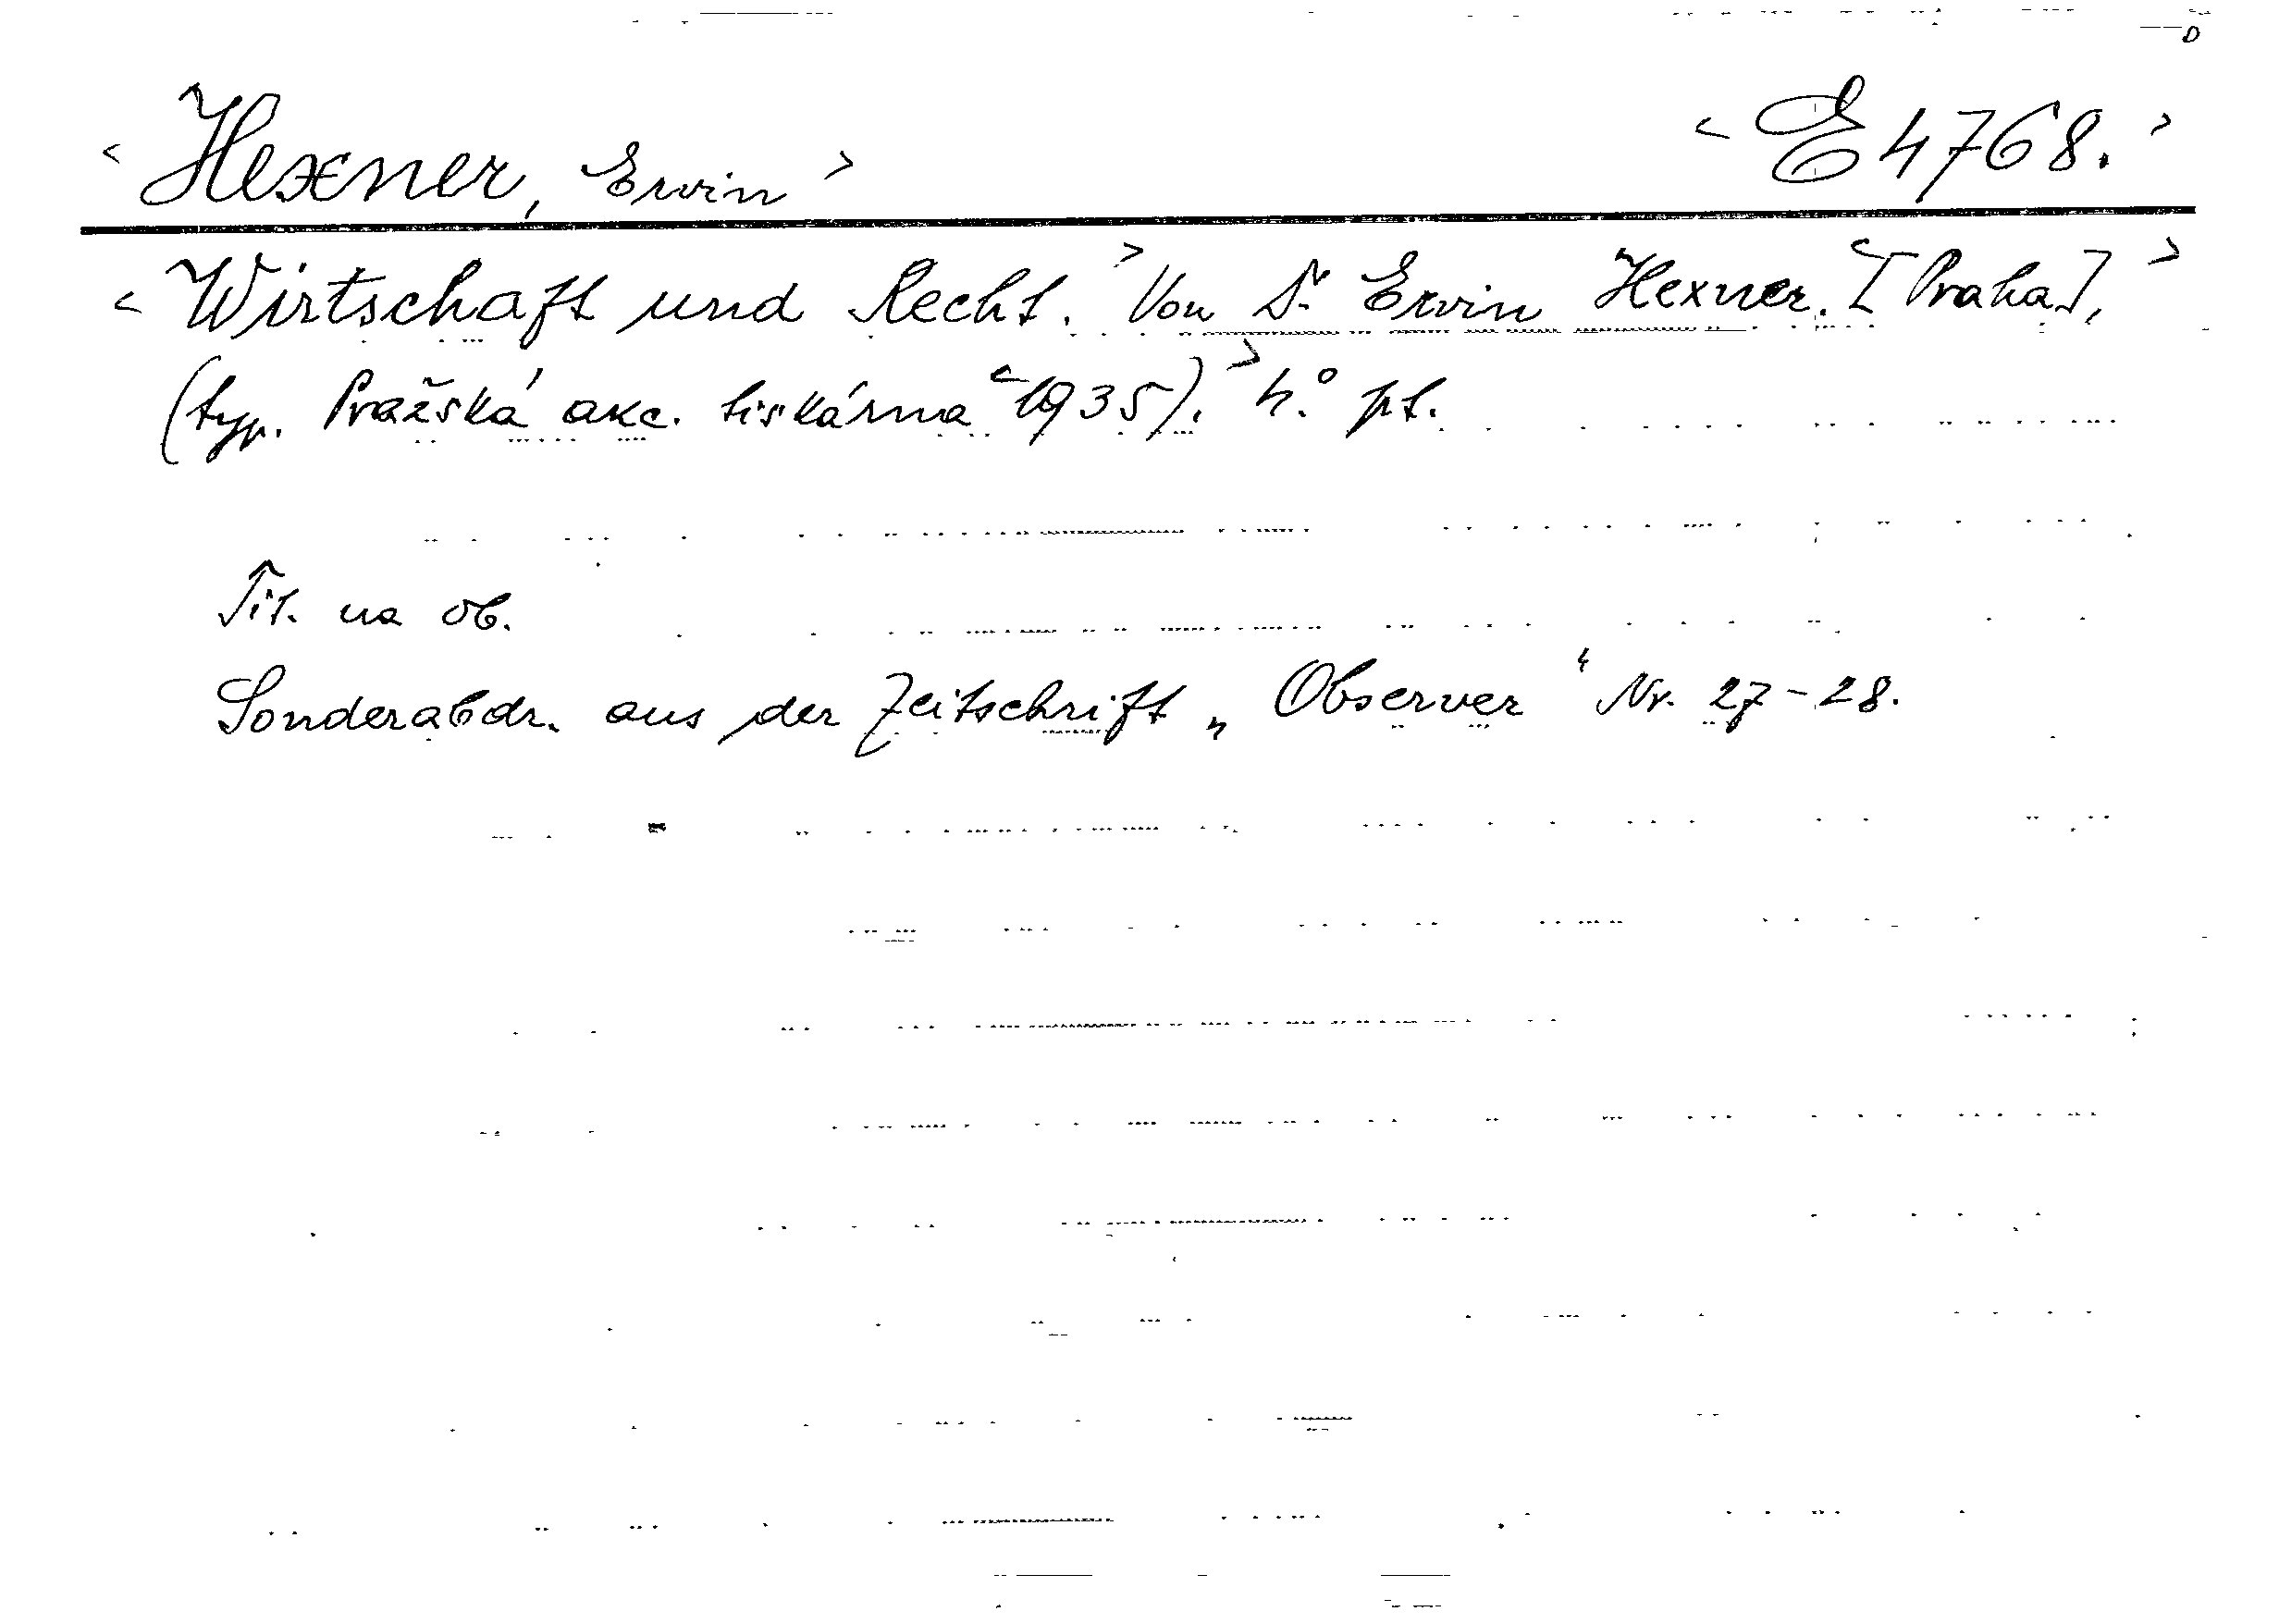 < Hexner, Ervin > < E 4768. >
< Wirtschaft und Recht. > Von Dr. Ervin Hexner. < [Praha], >
(typ. Pražská akc. tiskárna < 1935). > 4.° pt.
Tit. na ob.
Sonderabdr. aus der Zeitschrift „Observer“ Nr. 27-28.